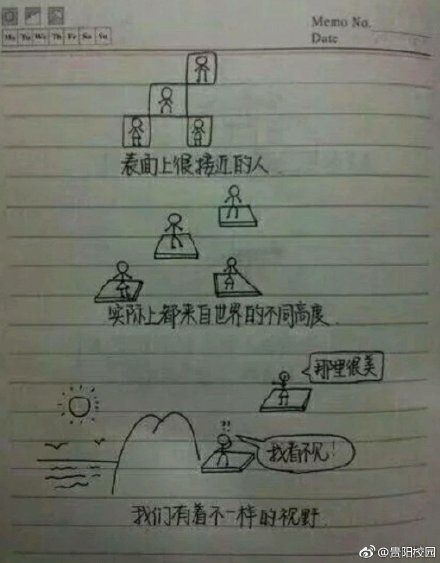 Memo No.
Mo Tu We Th Fr Sa Su
Date
表面上很接近的人
实际上都来自世界的不同高度
那里很美
??
我看不见!
我们有着不一样的视野
@贵阳校园